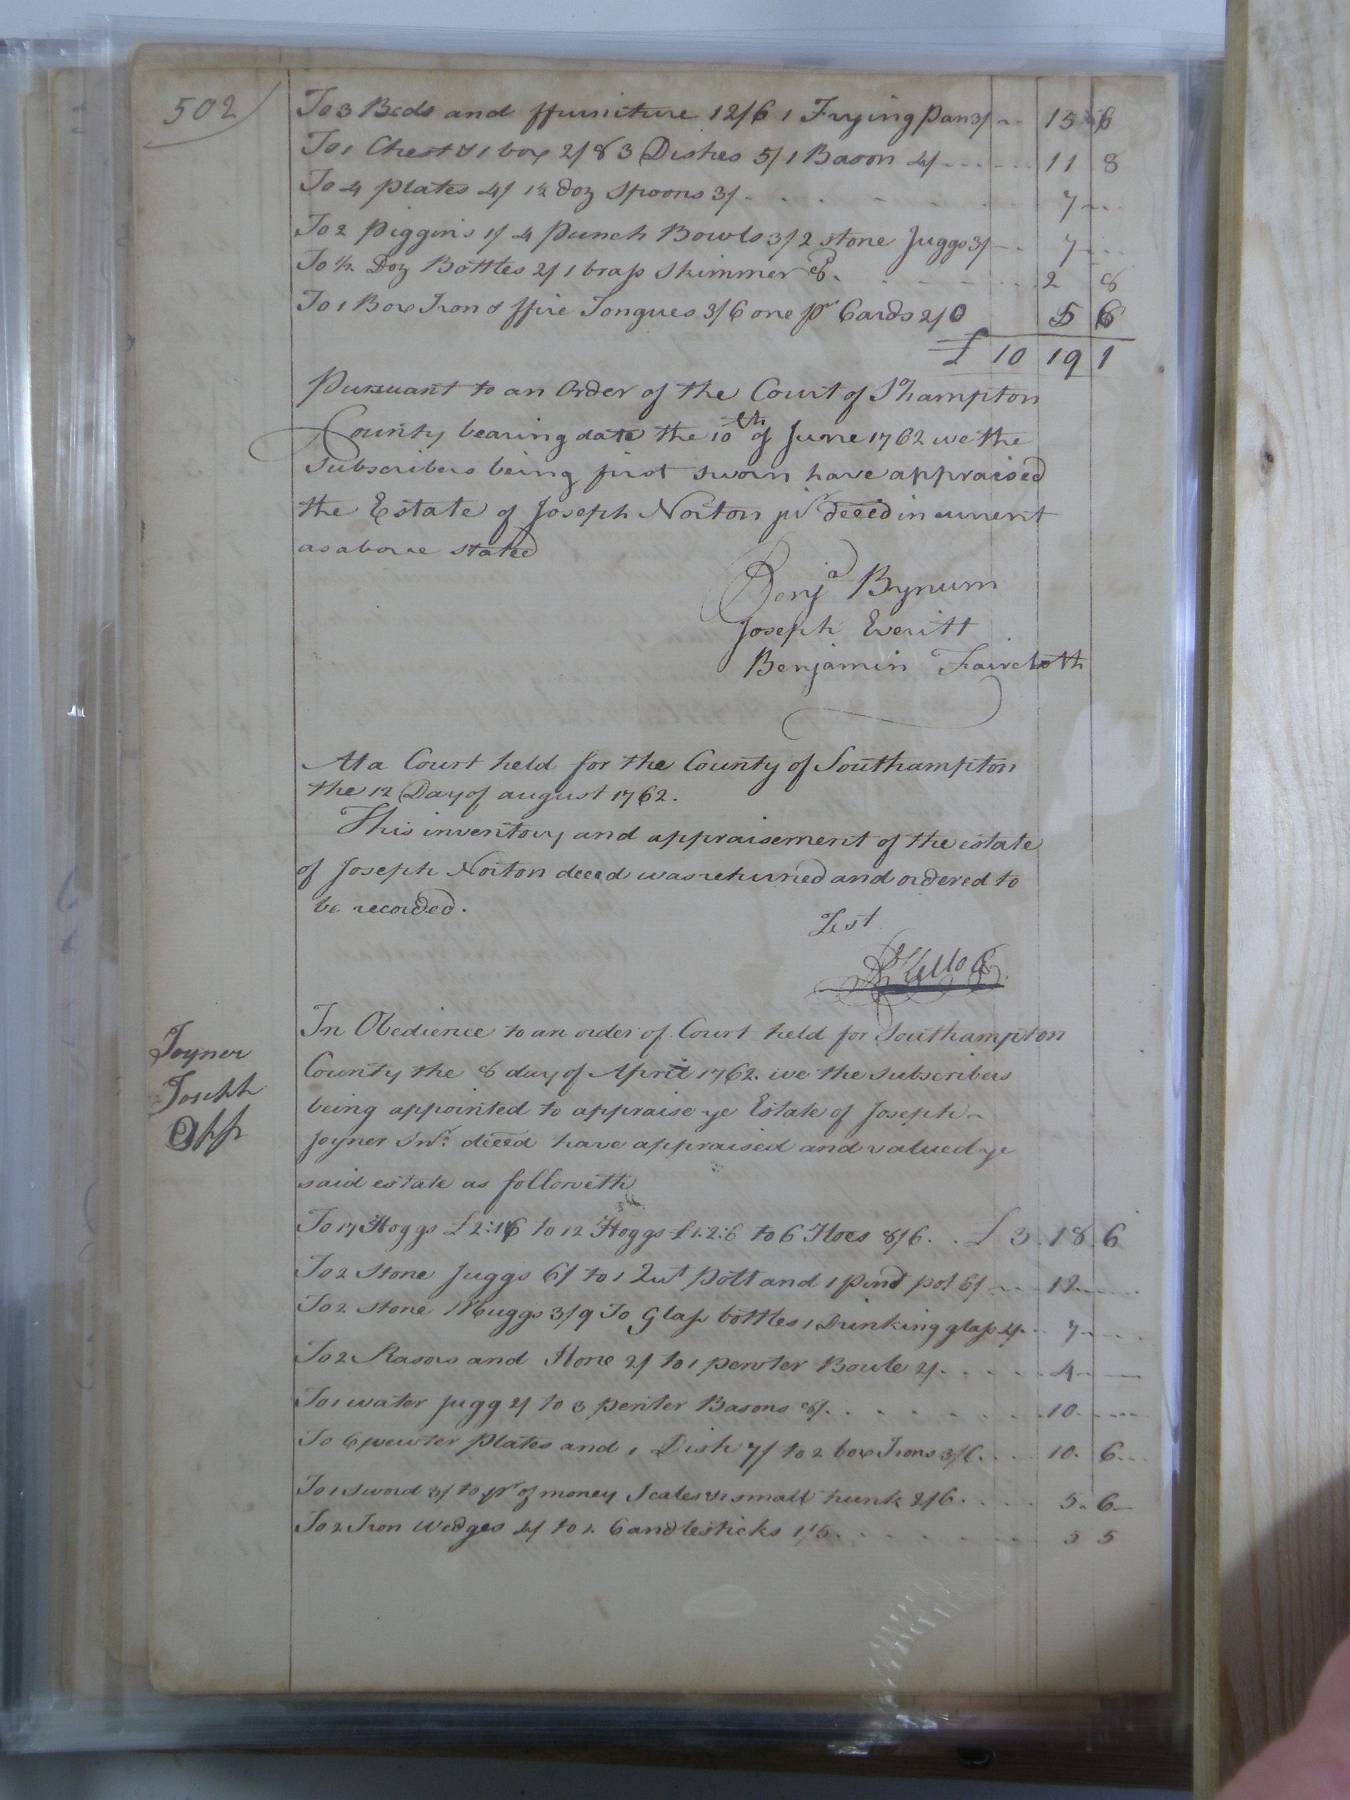 502
To 3 Beds and ffurniture 12/6 1 Frying pan 3/ 15 6
To 1 Chest & 1 box 2/8 3 Dishes 5/ 1 Bason 4/ 11 8
To 4 plates 4/ 1½ doz spoons 3/ 7
To 2 Piggins 1/ 4 Punch Bowls 3/ 2 stone Juggs 3/ 7
To ½ Doz Bottles 2/ 1 brass skimmer 8d 2 8
To 1 Box Iron & ffire Tongues 3/6 one pr Cards 2/0 5 6
£ 10 19 1
Pursuant to an Order of the Court of S'hampton
County bearing date the 10th of June 1762 we the
subscribers being first sworn have appraised
the Estate of Joseph Norton jr deced in curent
as above stated
Benja Bynum
Joseph Everitt
Benjamin Faircloth
At a Court held for the County of Southampton
the 12 Day of august 1762.
This inventory and appraisement of the estate
of Joseph Norton deced was returned and ordered to
be recorded.
Test
R Kello C
Joyner
Joseph
App
In Obedience to an order of Court held for Southampton
County the 8 day of April 1762. we the subscribers
being appointed to appraise ye Estate of Joseph
Joyner Snr. deced have appraised and valued ye
said estate as followeth
To 17 Hoggs £2:16 to 12 Hoggs £1:2:6 to 6 Hoes 8/6 £ 3 18 6
To 2 stone Juggs 6/ to 1 Qut Pott and 1 pint pot 6/ 12
To 2 stone Muggs 3/9 To Glass bottles 1 Drinking glass 7
To 2 Rasors and Hone 2/ to 1 pewter Boule 2/ 4
To 1 water jugg 2/ to 3 peuter Basons 8/ 10
To 6 pewter Plates and 1 Dish 7/ to 2 box Irons 3/6 10 6
To 1 sword 3/ to pr of money Scales & 1 small trunk 2/6 5 6
To 2 Iron Wedges 4/ to 2 Candlesticks 1/5 5 5